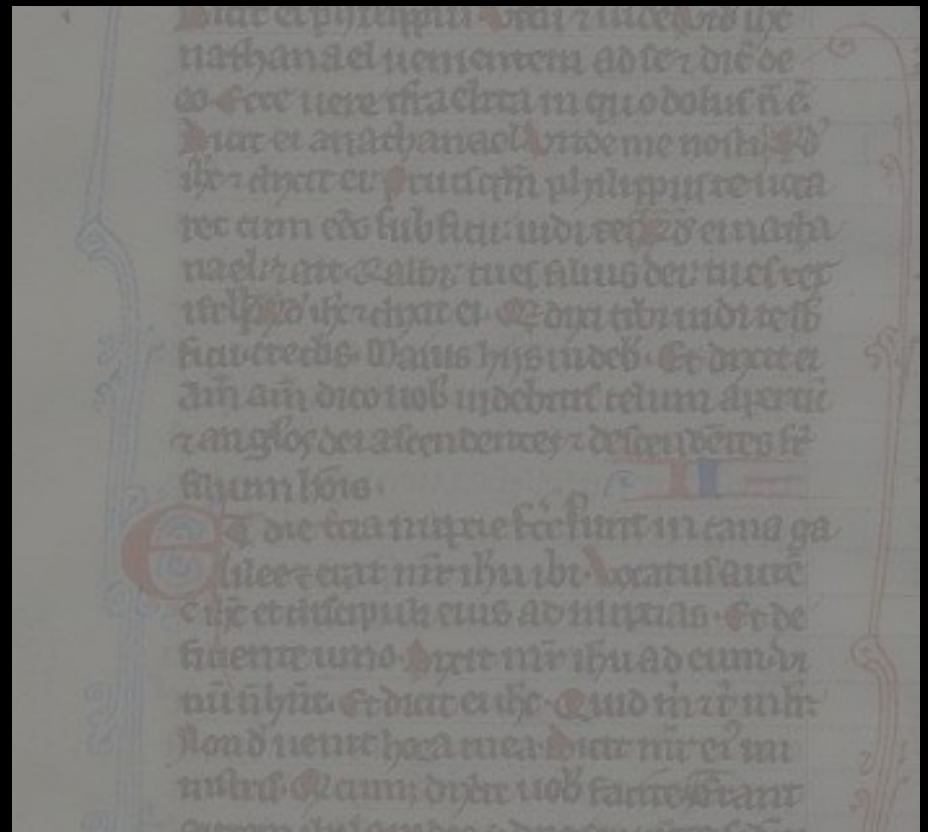 Dicit ei philippus Veni ⁊ uide Vid᷑ ihc
nathanael uenientem ad se ⁊ dic̄ de
eo Ecce uere isrł̄ahelita in quo dolus ñ ē
Dicit ei nathanael Vnde me nosti R̄ᵈ
ihc ⁊ dixit ei Priusq̄m philippus te uoca
ret cum eēs sub ficu uidi te Rᵈ ei natha
nael ⁊ ait Rabbi tu es filius dei tu es rex
isrł Rᵈ ihc ⁊ dixit ei Q̇ dixi tibi uidi te sb̄
ficu credis Maius hijs uideb̄ Et dixit ei
Am̄ am̄ dico uob̄ uidebitis celum apertū
⁊ anglos dei ascendentes ⁊ descendētes sr̄
filium hōis
II
Et die tͨia nupcie fc̄e sunt in cana ga
lilee ⁊ erat mr̄ ihu ibi Vocatus autē
ē ihc et discipuli eius ad nupcias Et de
ficiente uino Dicit mr̄ ihu ad eum vi
nū ñ hn̄t Et dicit ei ihc Quid m̍ ⁊ t̍ mulr̄
Nond̄ uenit hora mea Dicit mr̄ ei᾽ mi
nistris Q̇cumq̨ dix̄it uob̄ facite Erant